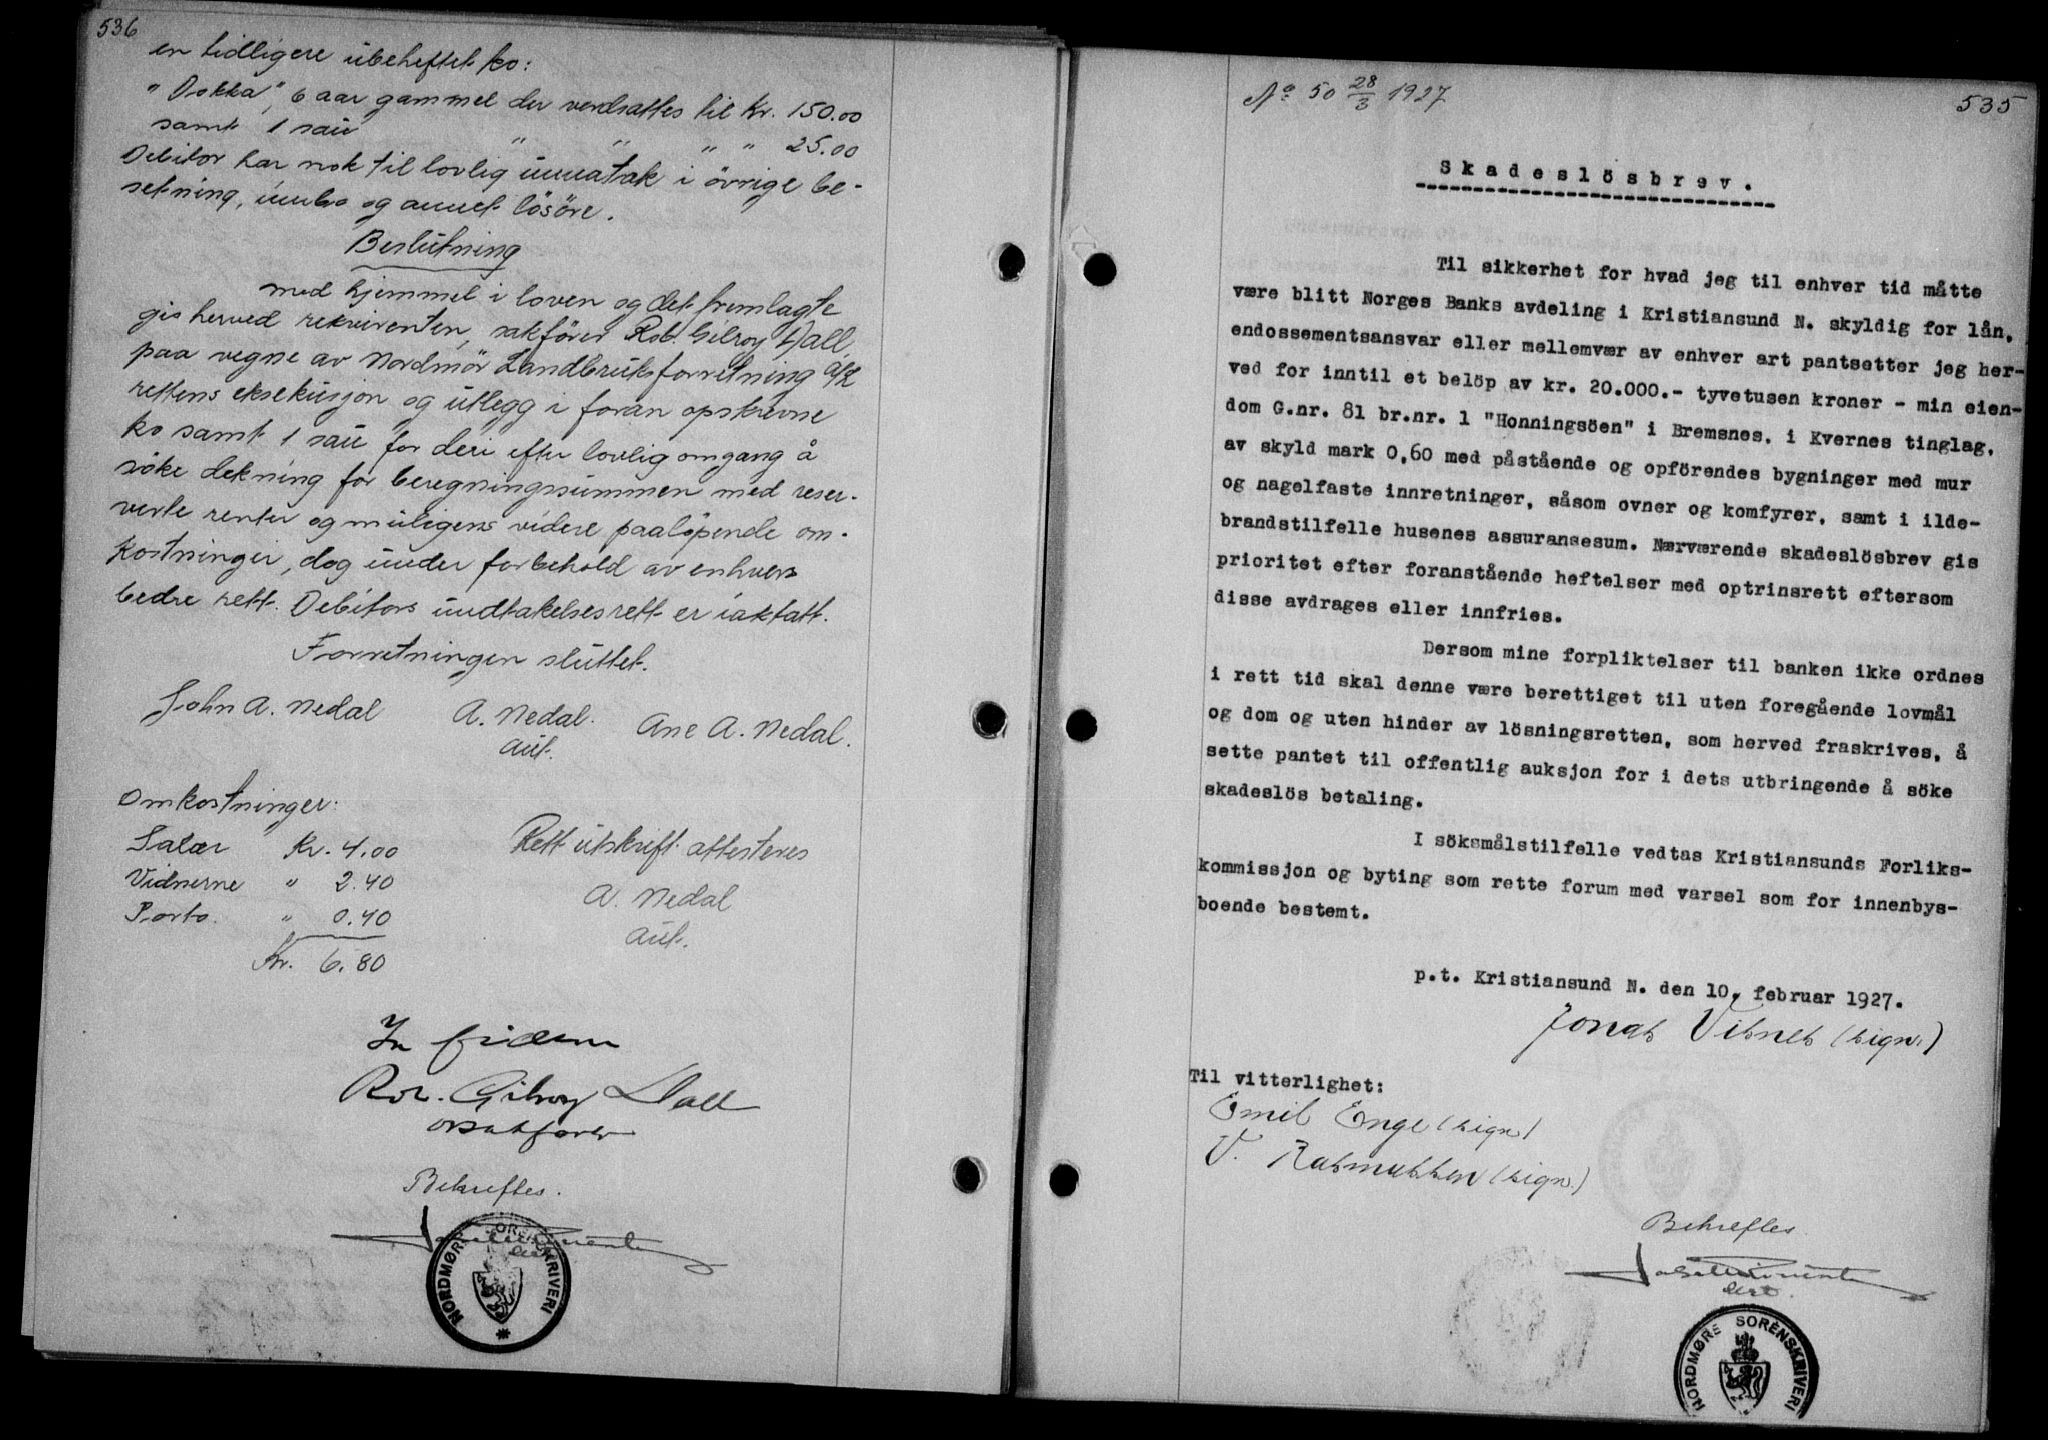 536
en tidligere ubeheftet ko:
"Dokka", 6 aar gammel der verdsattes til Kr. 150.00
samt 1 sau " " " " 25.00
Debitor har nok til lovlig unnatak i övrige be-
setning, innbo og annet lösöre.
Beslutning
med hjemmel i loven og det fremlagte
gis herved rekvirenten, sakförer Rob. Gilroy Dall,
paa vegne av Nordmör Landbruksforretning A/L
rettens eksekusjon og utlegg i foran opskrevne
ko samt 1 sau for deri efter lovlig omgang å
söke dekning for beregningssummen med reser-
verte renter og muligens videre paalöpende om-
kostninger, dog under forbehold av enhvers
bedre rett. Debitors undtakelsesrett er iaktatt.
Forretningen sluttet.
John A. Nedal A. Nedal. Ane A. Nedal.
aut.
Omkostninger:
Salær Kr. 4.00
Vidnerne " 2.40
Porto. " 0.40
Kr. 6.80
Rett utskrift attesteres
A. Nedal
aut.
In fidem
Rob. Gilroy Dall
o.r.sakförer
Bekreftes.
NORDMØRE SORENSKRIVERI
No 50 28/3 1927
535
Skadeslösbrev.
Til sikkerhet for hvad jeg til enhver tid måtte
være blitt Norges Banks avdeling i Kristiansund N. skyldig for lån,
endossementsansvar eller mellemvær av enhver art pantsetter jeg her-
ved for inntil et belöp av kr. 20.000.- tyvetusen kroner - min eien-
dom G.nr. 81 br.nr. 1 "Honningsöen" i Bremsnes, i Kvernes tinglag,
av skyld mark 0,60 med påstående og opförendes bygninger med mur
og nagelfaste innretninger, såsom ovner og komfyrer, samt i ilde-
brandstilfelle husenes assuransesum. Nærværende skadeslösbrev gis
prioritet efter foranstående heftelser med optrinsrett eftersom
disse avdrages eller innfries.
Dersom mine forpliktelser til banken ikke ordnes
i rett tid skal denne være berettiget til uten foregående lovmål
og dom og uten hinder av lösningsretten, som herved fraskrives, å
sette pantet til offentlig auksjon for i dets utbringende å söke
skadeslös betaling.
I söksmålstilfelle vedtas Kristiansunds Forliks-
kommissjon og byting som rette forum med varsel som for innenbys-
boende bestemt.
p.t. Kristiansund N. den 10. februar 1927.
Jonas Vitnes (sign.)
Til vitterlighet:
Emil Enge (sign)
V. Rasmussen (sign.)
Bekreftes
NORDMØRE SORENSKRIVERI